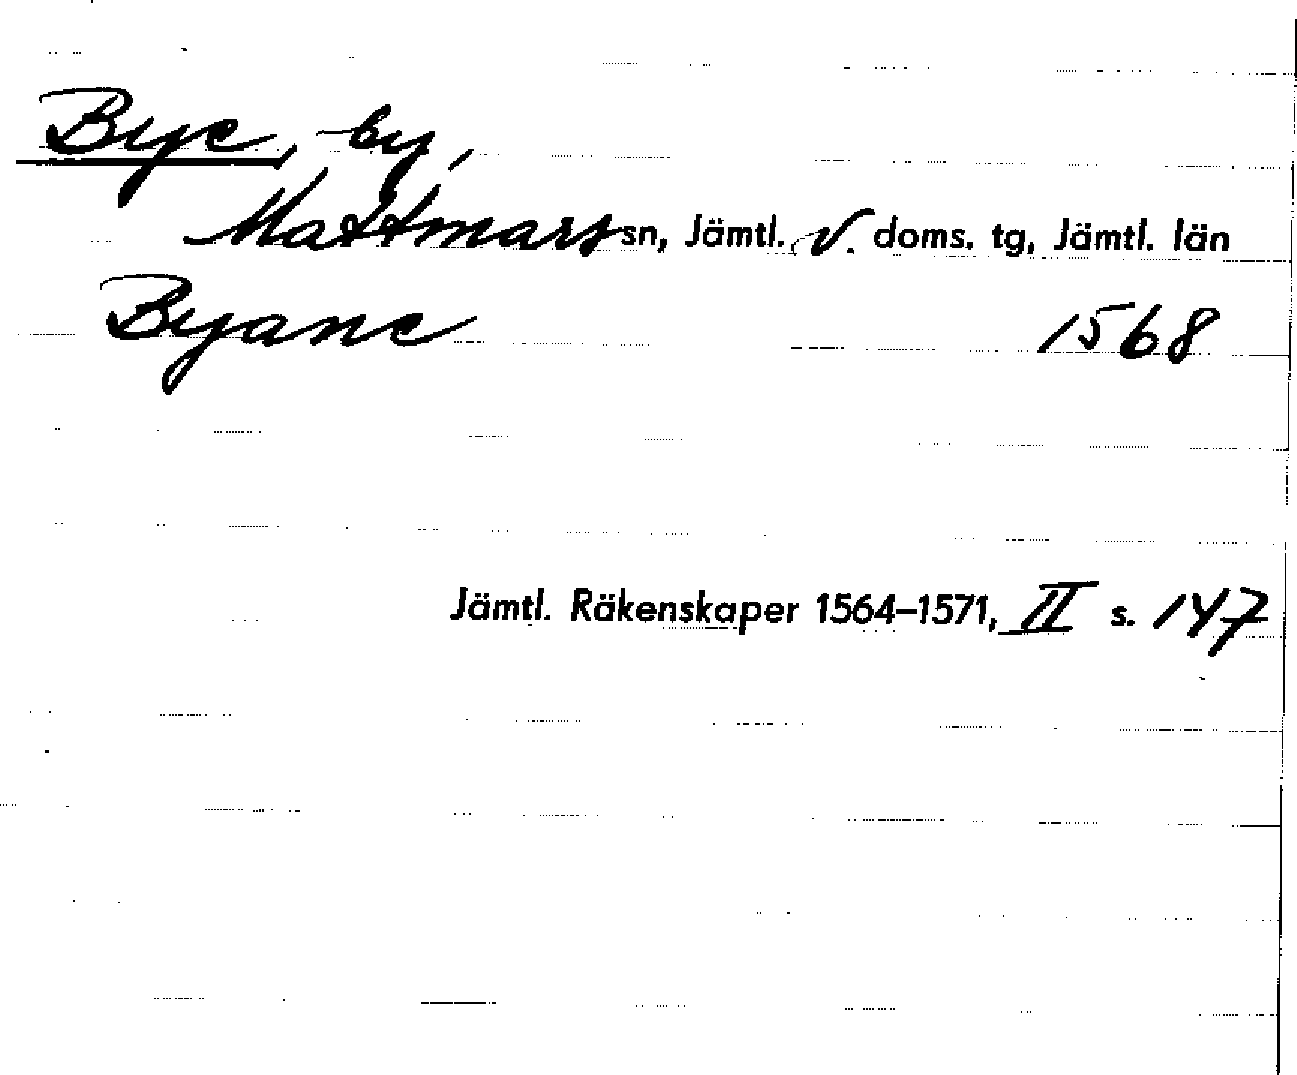 Bye, by,
Mattmars sn, Jämtl. V. doms. tg, Jämtl. län
Byane 1568
Jämtl. Räkenskaper 1564–1571, II s. 147